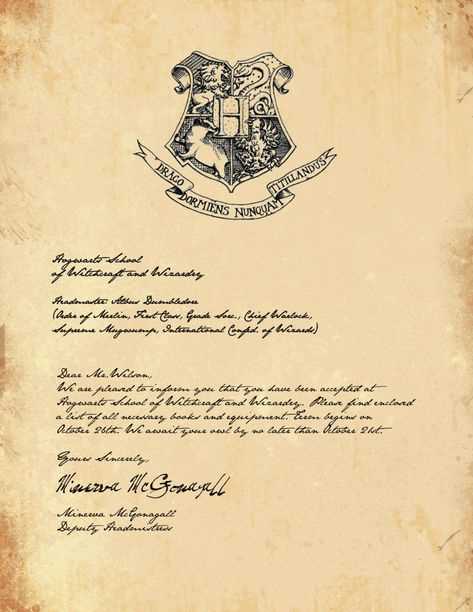 H
DRAGO DORMIENS NUNQUAM TITILLANDUS
Hogwarts School
of Witchcraft and Wizardry
Headmaster Albus Dumbledore
(Order of Merlin, First Class, Grade Sorc., Chief Warlock,
Supreme Mugwump, International Confed. of Wizards)
Dear Mr. Wilson,
We are pleased to inform you that you have been accepted at
Hogwarts School of Witchcraft and Wizardry. Please find enclosed
a list of all necessary books and equipment. Term begins on
October 26th. We await your owl by no later than October 21st.
Yours Sincerely,
Minerva McGonagall
Minerva McGonagall
Deputy Headmistress